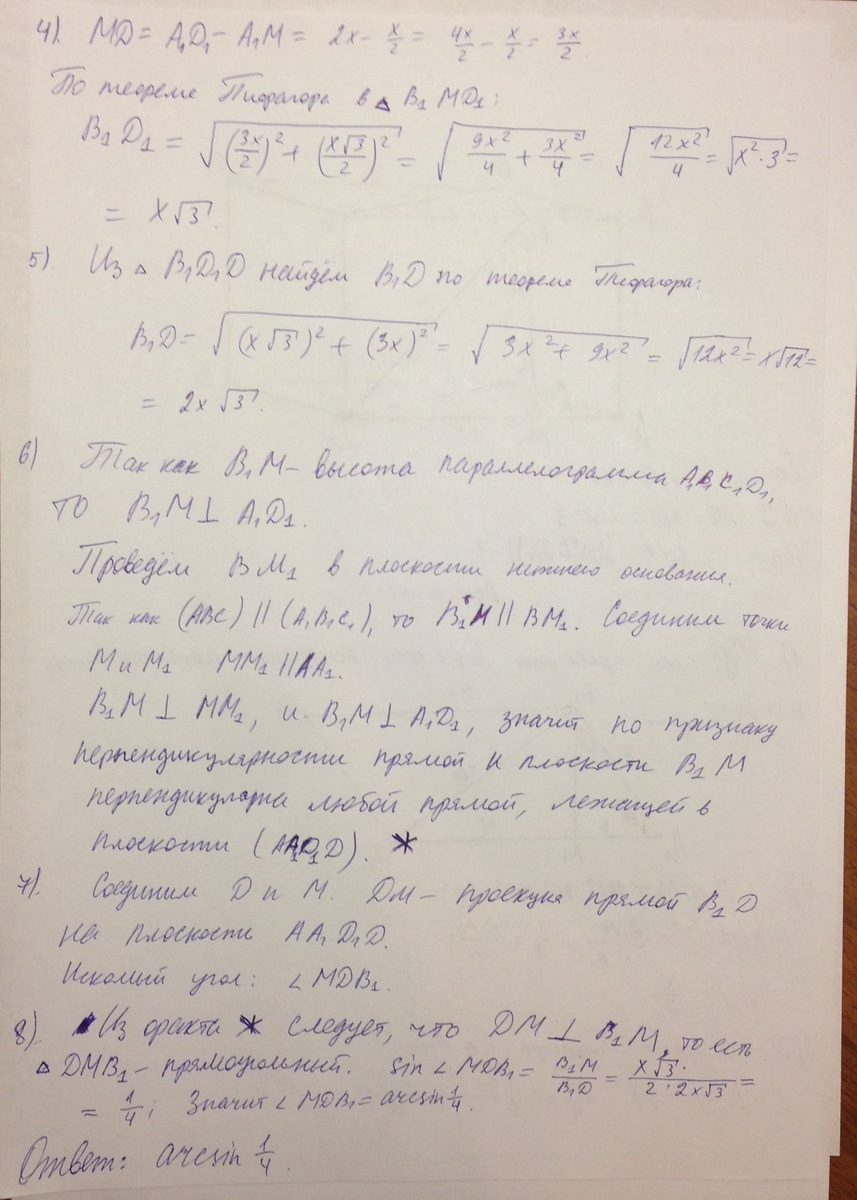 4). MD = A₁D₁ - A₁M = 2x - x/2 = 4x/2 - x/2 = 3x/2.
По теореме Пифагора в △ B₁MD₁:
B₁D₁ = √((3x/2)² + (x√3/2)²) = √(9x²/4 + 3x²/4) = √(12x²/4) = √(x²·3) =
= x√3.
5). Из △ B₁D₁D найдём B₁D по теореме Пифагора:
B₁D = √((x√3)² + (3x)²) = √(3x² + 9x²) = √(12x²) = x√12 =
= 2x√3.
6) Так как B₁M – высота параллелограмма A₁B₁C₁D₁,
то B₁M ⊥ A₁D₁.
Проведём BM₁ в плоскости нижнего основания.
Так как (ABC) || (A₁B₁C₁), то B₁M || BM₁. Соединим точки
M и M₁. MM₁ || AA₁.
B₁M ⊥ MM₁, и B₁M ⊥ A₁D₁, значит по признаку
перпендикулярности прямой и плоскости B₁M
перпендикулярна любой прямой, лежащей в
плоскости (AA₁D₁D). *
7). Соединим D и M. DM – проекция прямой B₁D
на плоскости AA₁D₁D.
Искомый угол: ∠MDB₁.
8). Из факта * следует, что DM ⊥ B₁M, то есть
△ DMB₁ – прямоугольный. sin ∠MDB₁ = B₁M/B₁D = x√3/(2·2x√3) =
= 1/4; Значит ∠MDB₁ = arcsin 1/4.
Ответ: arcsin 1/4.